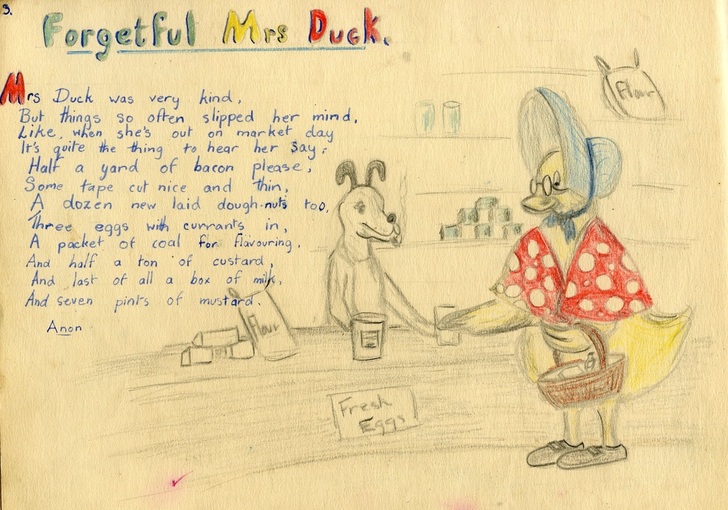 3.
Forgetful Mrs Duck.
Mrs Duck was very kind,
But things so often slipped her mind,
Like, when she's out on market day
It's quite the thing to hear her say;
Half a yard of bacon please,
Some tape cut nice and thin,
A dozen new laid dough-nuts too,
Three eggs with currants in,
A packet of coal for flavouring,
And half a ton of custard,
And last of all a box of milk,
And seven pints of mustard.
Anon
Flour
Flour
Fresh
Eggs